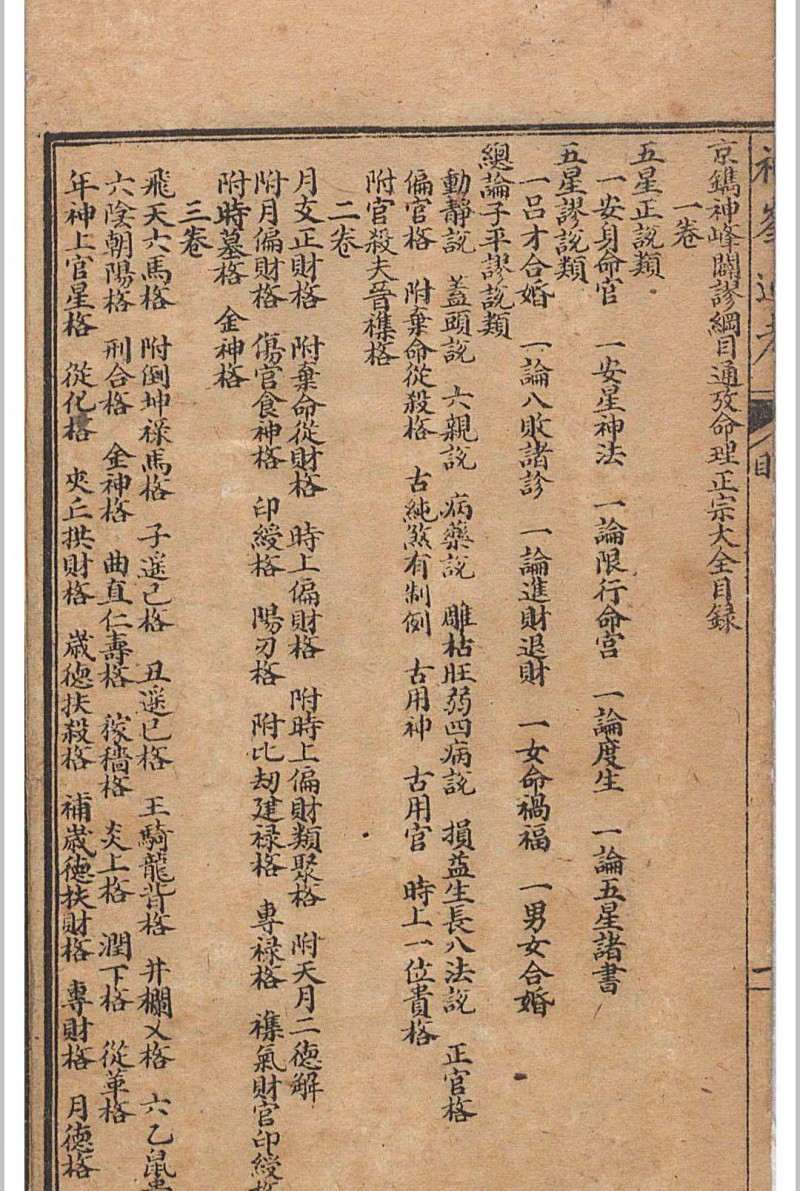 神峯通考 目 一
京鐫神峰闢謬綱目通攷命理正宗大全目録
一卷
五星正說類
一安身命官 一安星神法 一論限行命宮 一論度生 一論五星諸書
五星謬說類
一呂才合婚 一論八敗諸診 一論進財退財 一女命禍福 一男女合婚
總論子平謬說類
動靜説 蓋頭説 六親説 病藥説 雕枯旺弱四病説 損益生長八法説 正官格
偏官格 附棄命從殺格 古純煞有制例 古用神 古用官 時上一位貴格
附官殺夫晉襍格
二卷
月支正財格 附棄命從財格 時上偏財格 附時上偏財類聚格 附天月二德解
附月偏財格 傷官食神格 印綬格 陽刃格 附比刼建禄格 專禄格 襍氣財官印綬格
附時墓格 金神格
三卷
飛天六馬格 附倒坤祿馬格 子遥己格 丑遥巳格 王騎龍背格 井欄乂格 六乙鼠貴
六陰朝陽格 刑合格 金神格 曲直仁壽格 稼穡格 炎上格 潤下格 從革格
年神上官星格 從化格 夾丘拱財格 歳德扶殺格 補歳德扶財格 專財格 月德格